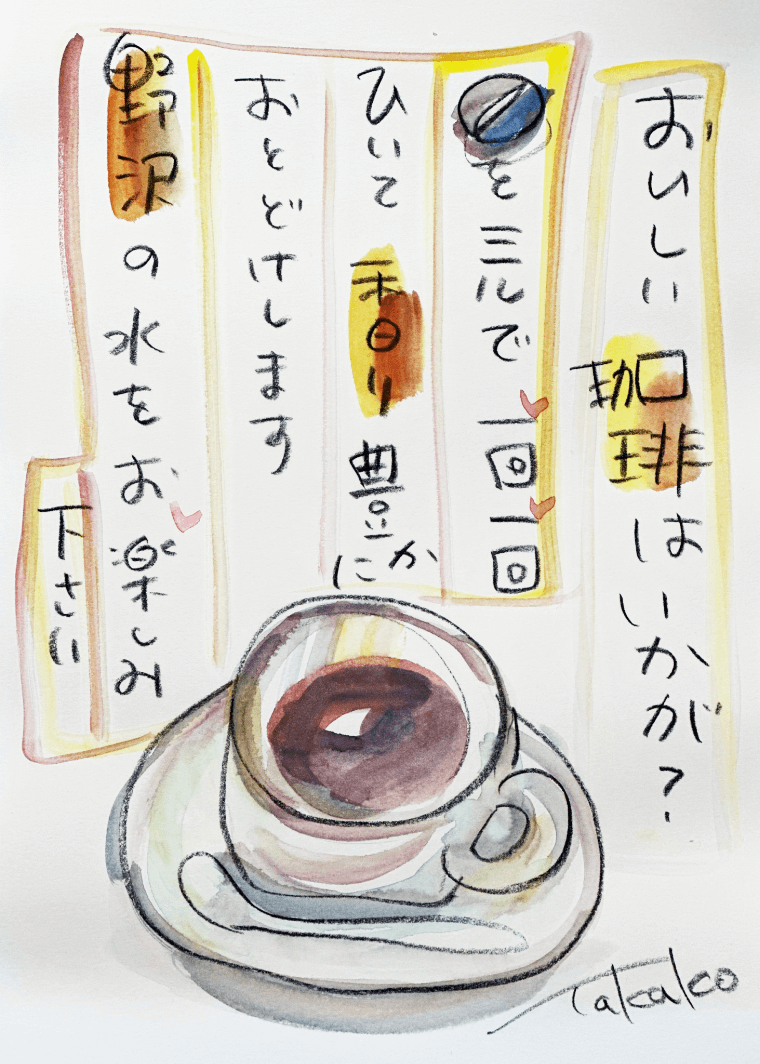 おいしい珈琲はいかが?
をミルで一回一回
ひいて香り豊かに
おとどけします
野沢の水をお楽しみ
下さい
Takako